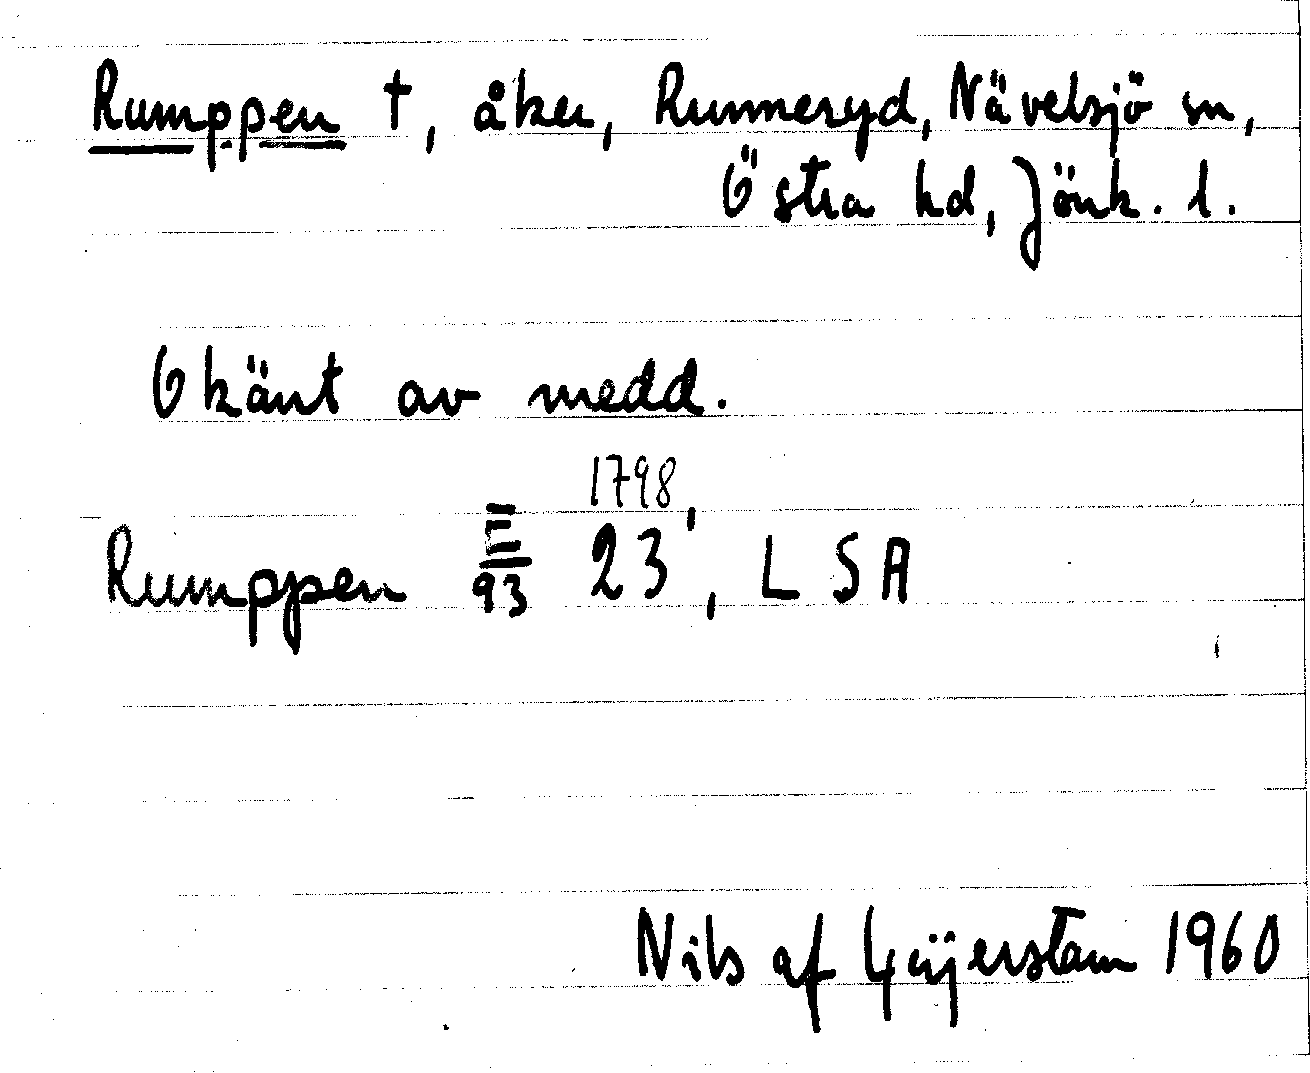 Rumppen †, åker, Runneryd, Nävelsjö sn,
Östra hd, Jönk. l.
Okänt av medd.
1798,
Rumppen E/93 23, LSA
Nils af Geijerstam 1960